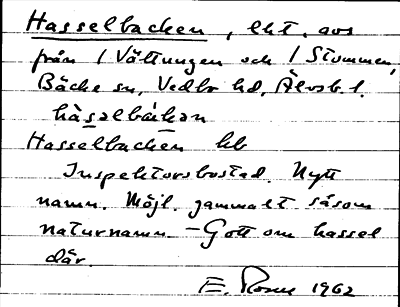 Hasselbacken, lht. avs
från 1 Vättungen och 1 Stommen,
Bäcke sn, Vedbo hd, Älvsb. l.
hàsəlbákən
Hasselbacken hb
Inspektorsbostad. Nytt
namn. Möjl. gammalt såsom
naturnamn. – Gott om hassel
där.
E. 1962